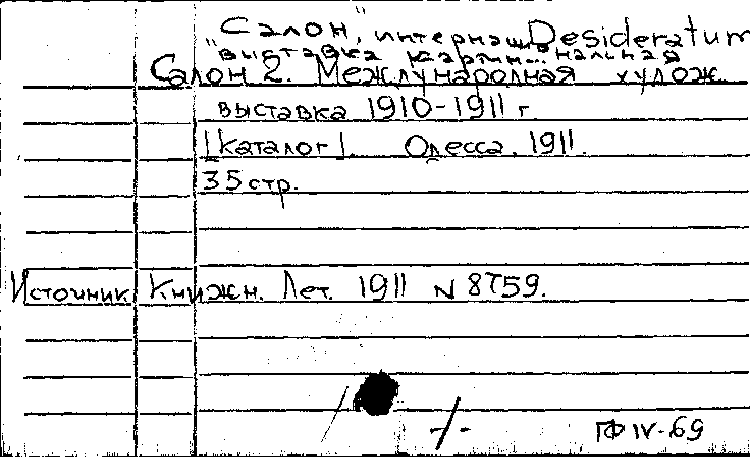 „Салон," интернацио- Desideratum
нальная
"выставка картин...
Салон 2. Международная худож.
выставка 1910-1911 г.
[каталог]. Одесса, 1911.
35 стр.
Источник. Книжн. Лет. 1911 N 8759.
-/-
ГФ IV-69